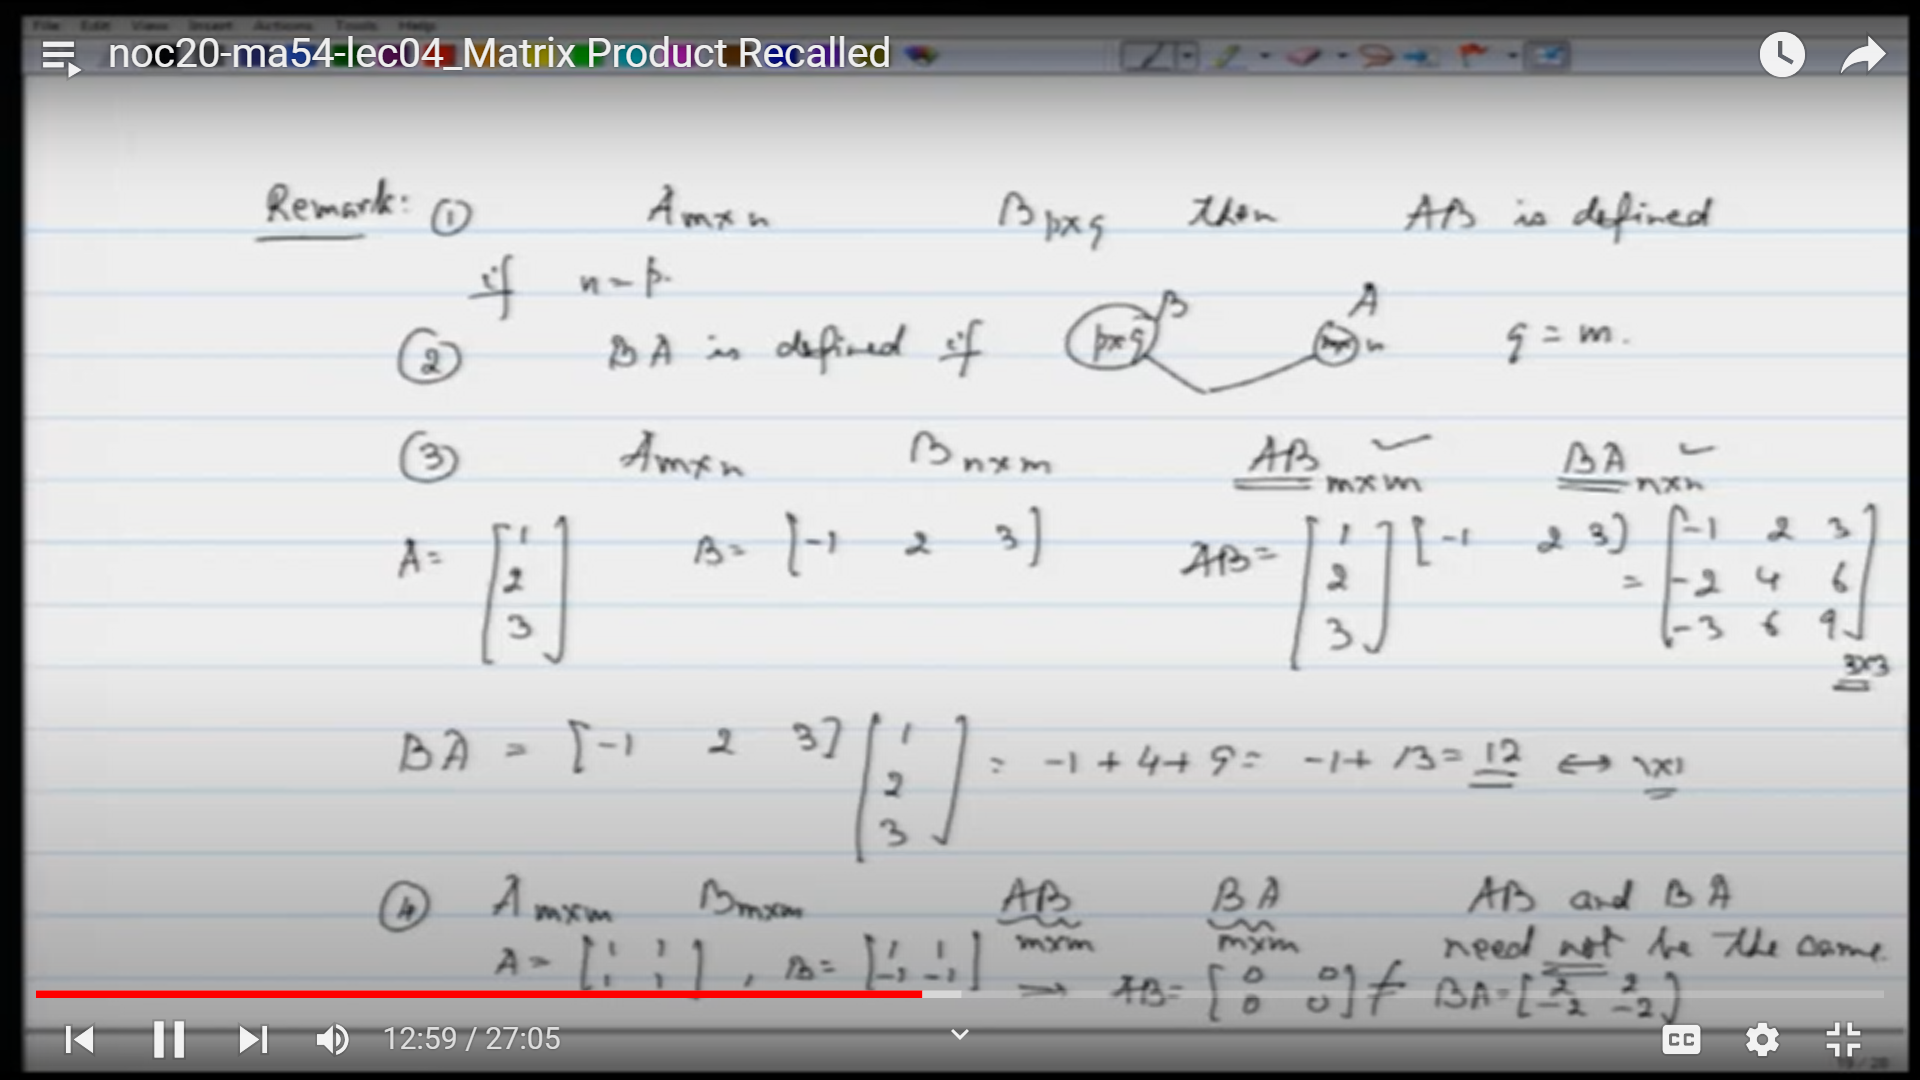 File Edit View Insert Actions Tools Help
noc20-ma54-lec04_Matrix Product Recalled
Remark: ① A m×n B p×q then AB is defined
if n = p.
② BA is defined if p×q B m×n A q = m.
③ A m×n B n×m AB m×m ✓ BA n×n ✓
A = [1 2 3] B = [-1 2 3] AB = [1 2 3] [-1 2 3] = [-1 2 3 -2 4 6 -3 6 9] 3×3
BA = [-1 2 3] [1 2 3] = -1 + 4 + 9 = -1 + 13 = 12 ↔ 1×1
④ A m×m B m×m AB m×m BA m×m AB and BA
need not be the same.
A = [1 1 1 1], B = [1 1 -1 -1] → AB = [0 0 0 0] ≠ BA = [2 2 -2 -2]
12:59 / 27:05
CC